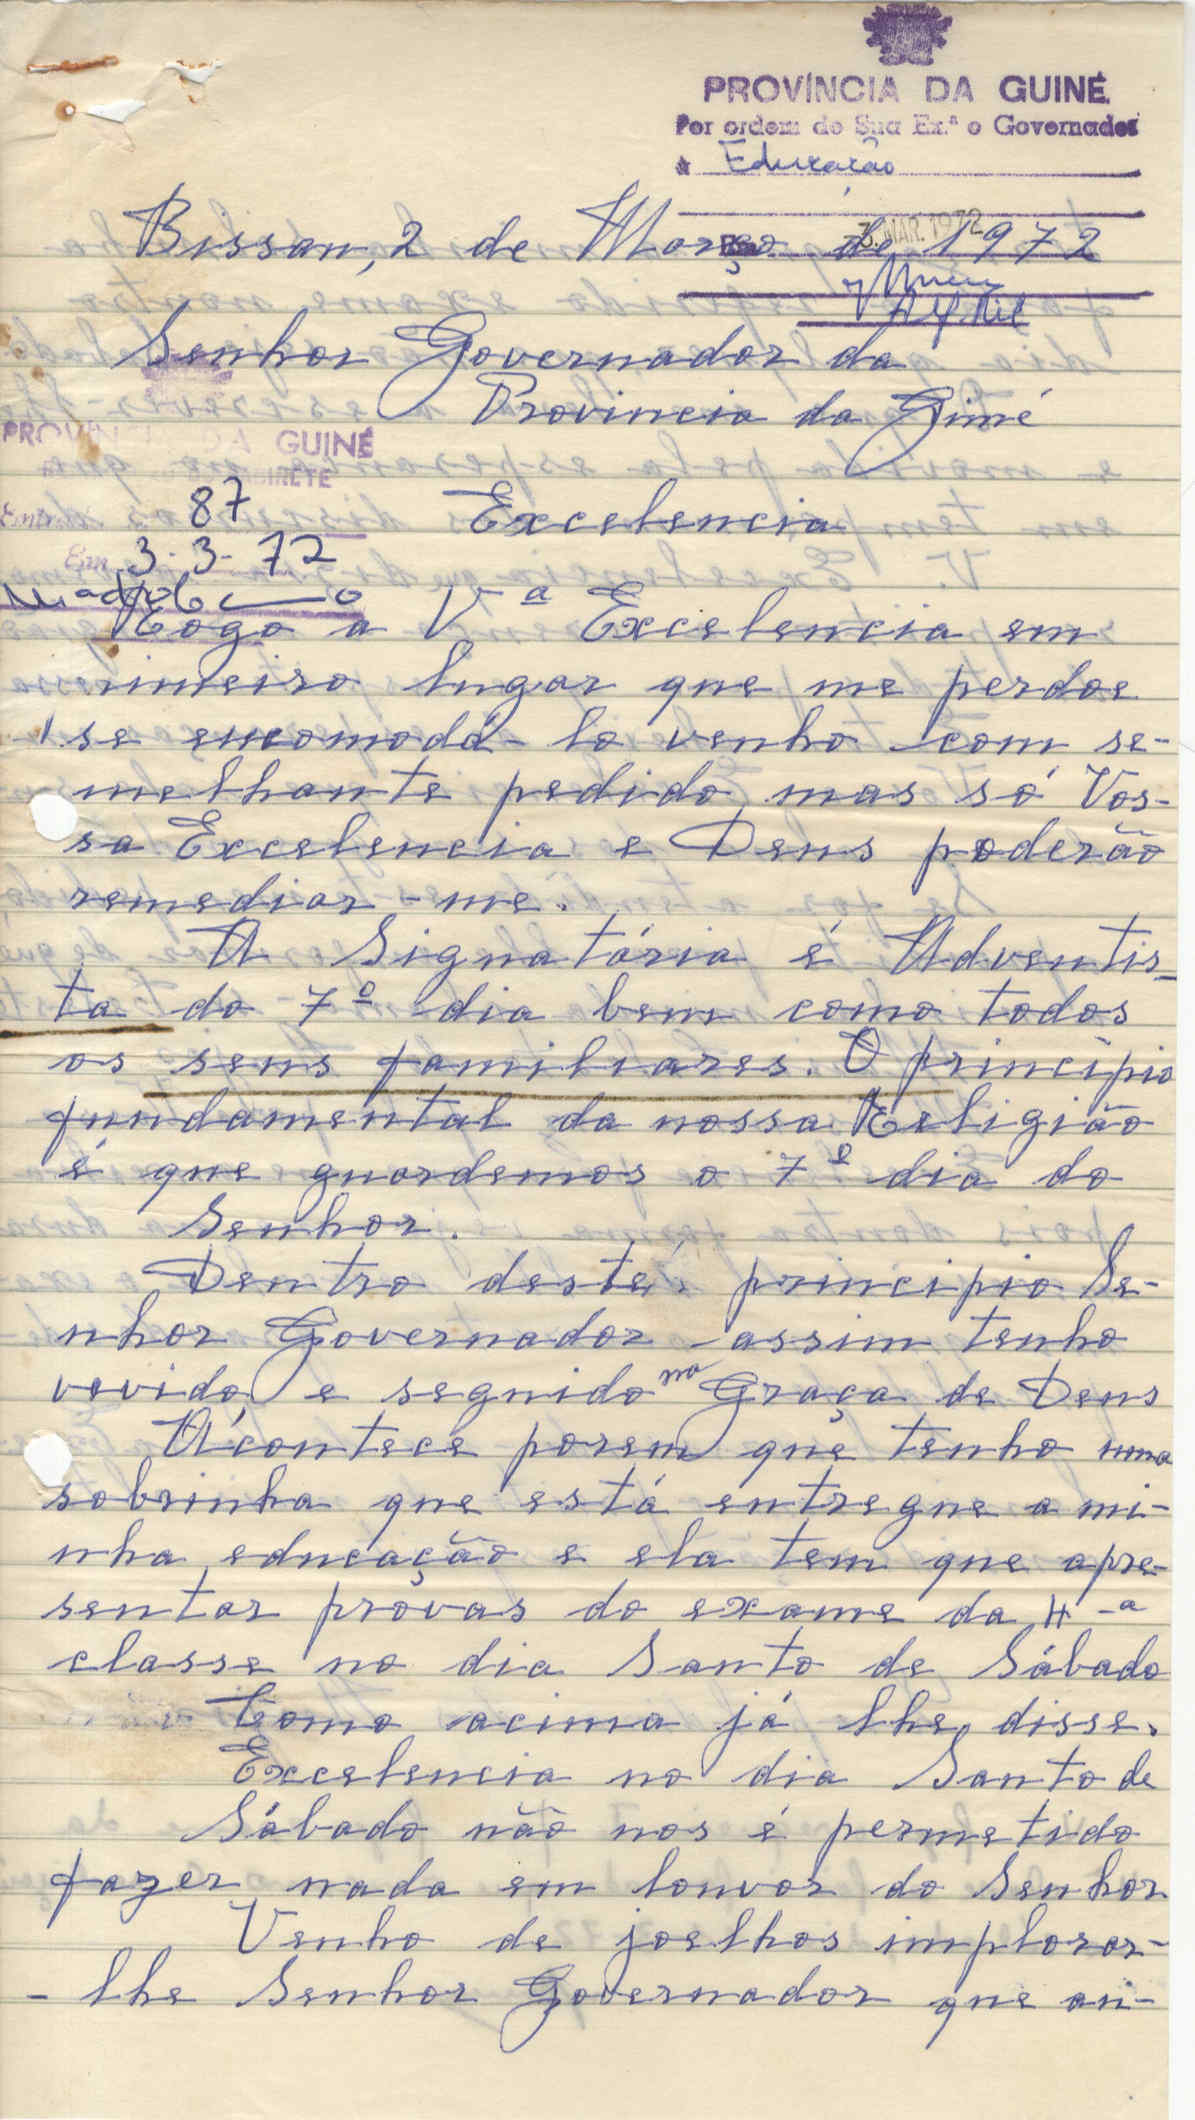 PROVÍNCIA DA GUINÉ
Por ordem de Sua Ex.ª o Governador
à Educação
Bissau, 2 de Março de 1972
3. MAR. 1972
Senhor Governador da
Provincia da Giné
PROVÍNCIA DA GUINÉ
87
Excelencia
Em 3-3-72
Rogo a Vª Excelencia em
rimeiro lugar que me perdoe
se encomodá-lo venho com se-
melhante pedido, mas só Vos-
sa Excelencia e Deus poderão
remediar-me.
A Signatária é Adventis-
ta do 7º dia bem como todos
os seus familiares. O princípio
fundamental da nossa Religião
é que guardemos o 7º dia do
Senhor.
Dentro deste principio Se-
nhor Governador assim tenho
vevido e seguido na Graça de Deus
Acontece porem que tenho uma
sobrinha que está entregue a mi-
nha educação e ela tem que apre-
sentar provas do exame da 4-ª
classe no dia Santo de Sábado
Como acima já lhe disse.
Excelencia no dia Santo de
Sábado não nos é permetido
fazer nada em louvor do Senhor
Venho de joelhos implorar-
-lhe Senhor Governador que au-